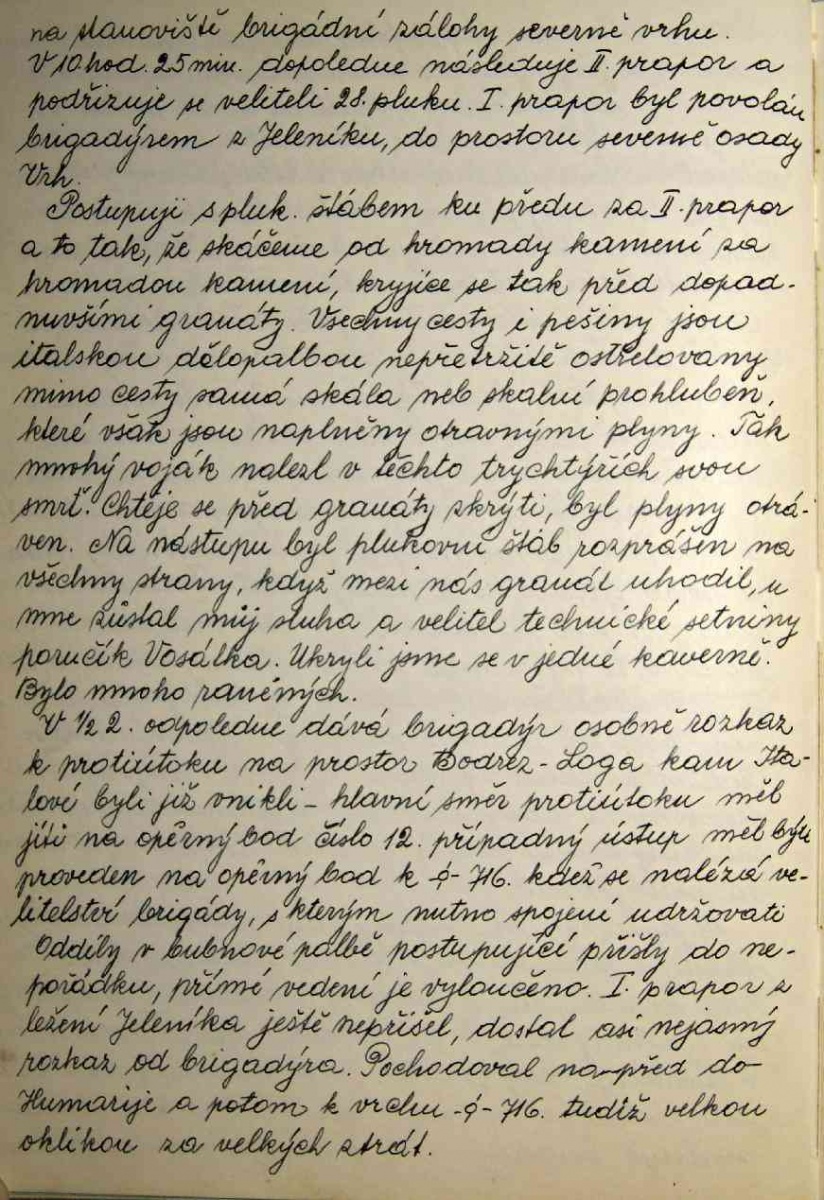 na stanoviště brigádní zálohy severně vrhu.
V 10 hod. 25 min. dopoledne následuje II. prapor a
podřizuje se veliteli 28. pluku. I. prapor byl povolán
brigadýrem z Jeleníku, do prostoru severně osady
Vrh.
Postupuji s pluk. štábem ku předu za II. prapor
a to tak, že skáčeme od hromady kamení za
hromadou kamení, kryjíce se tak před dopad-
nuvšími granáty. Všechny cesty i pešiny jsou
italskou dělopalbou nepřetržitě ostřelovany
mimo cesty samá skála neb skalní prohlubeň,
které však jsou naplněny otravnými plyny. Tak
mnohý voják nalezl v těchto trychtýřích svou
smrť. Chtěje se před granáty skrýti, byl plyny otrá-
ven. Na nástupu byl plukovní štáb rozprášen na
všechny strany, když mezi nás granát uhodil, u
mne zůstal můj sluha a velitel technické setniny
poručík Vosálka. Ukryli jsme se v jedné kaverně.
Bylo mnoho raněných.
V ½ 2. odpoledne dává brigadýr osobně rozkaz
k protiútoku na prostor Bodrez - Loga kam Ita-
lové byli již vnikli - hlavní směr protiútoku měl
jíti na opěrný bod číslo 12. případný ústup měl býti
proveden na opěrný bod k -ϙ- 716. kdež se nalézá ve-
litelství brigády, s kterým nutno spojení udržovati
Oddíly v bubnové palbě postupující přišly do ne-
pořádku, přímé vedení je vyloučeno. I. prapor z
ležení Jeleníka ještě nepřišel, dostal asi nejasný
rozkaz od brigadýra. Pochodoval na-před do
Humarije a potom k vrchu -ϙ- 716. tudíž velkou
oklikou za velkých ztrát.